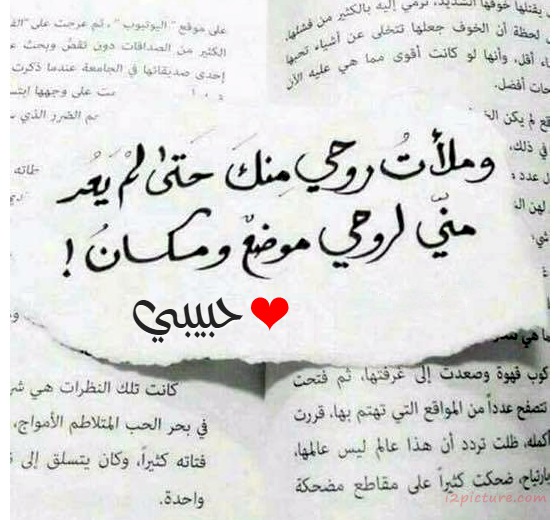 على موقع "اليوتيوب"، ثم عرجت على
الكثير من الصداقات دون نقض وبحث
إحدى صديقاتها في الجامعة عندما ذكرت
ت على وجهها
م الضرر الذي
يقتلها خوفها الشديد، ترمي إليه بالكثير من فشلها،
لحظة أن الخوف جعلها تتخلى عن أشياء تحبها
أقل، وأنها لو كانت أقوى مما هي عليه الآن
أفضل.
لم يكن
في ذلك،
عدد
لهن
وملأتُ روحي مِنكَ حَتىٰ لمْ يَعُد
منّي لروحي موضعٌ ومكانُ!
حبيبي ❤
كانت تلك النظرات هي
في بحر الحب المتلاطم الأمواج،
فتاته كثيراً، وكان يتسلق إلى
واحدة.
ما هي
كوب قهوة وصعدت إلى غرفتها، ثم فتحت
تتصفح عدداً من المواقع التي تهتم بها، قررت
أكمله، ظلت تردد أن هذا عالم ليس عالمها،
بارتياح، ضحكت كثيراً على مقاطع مضحكة
i2picture.com